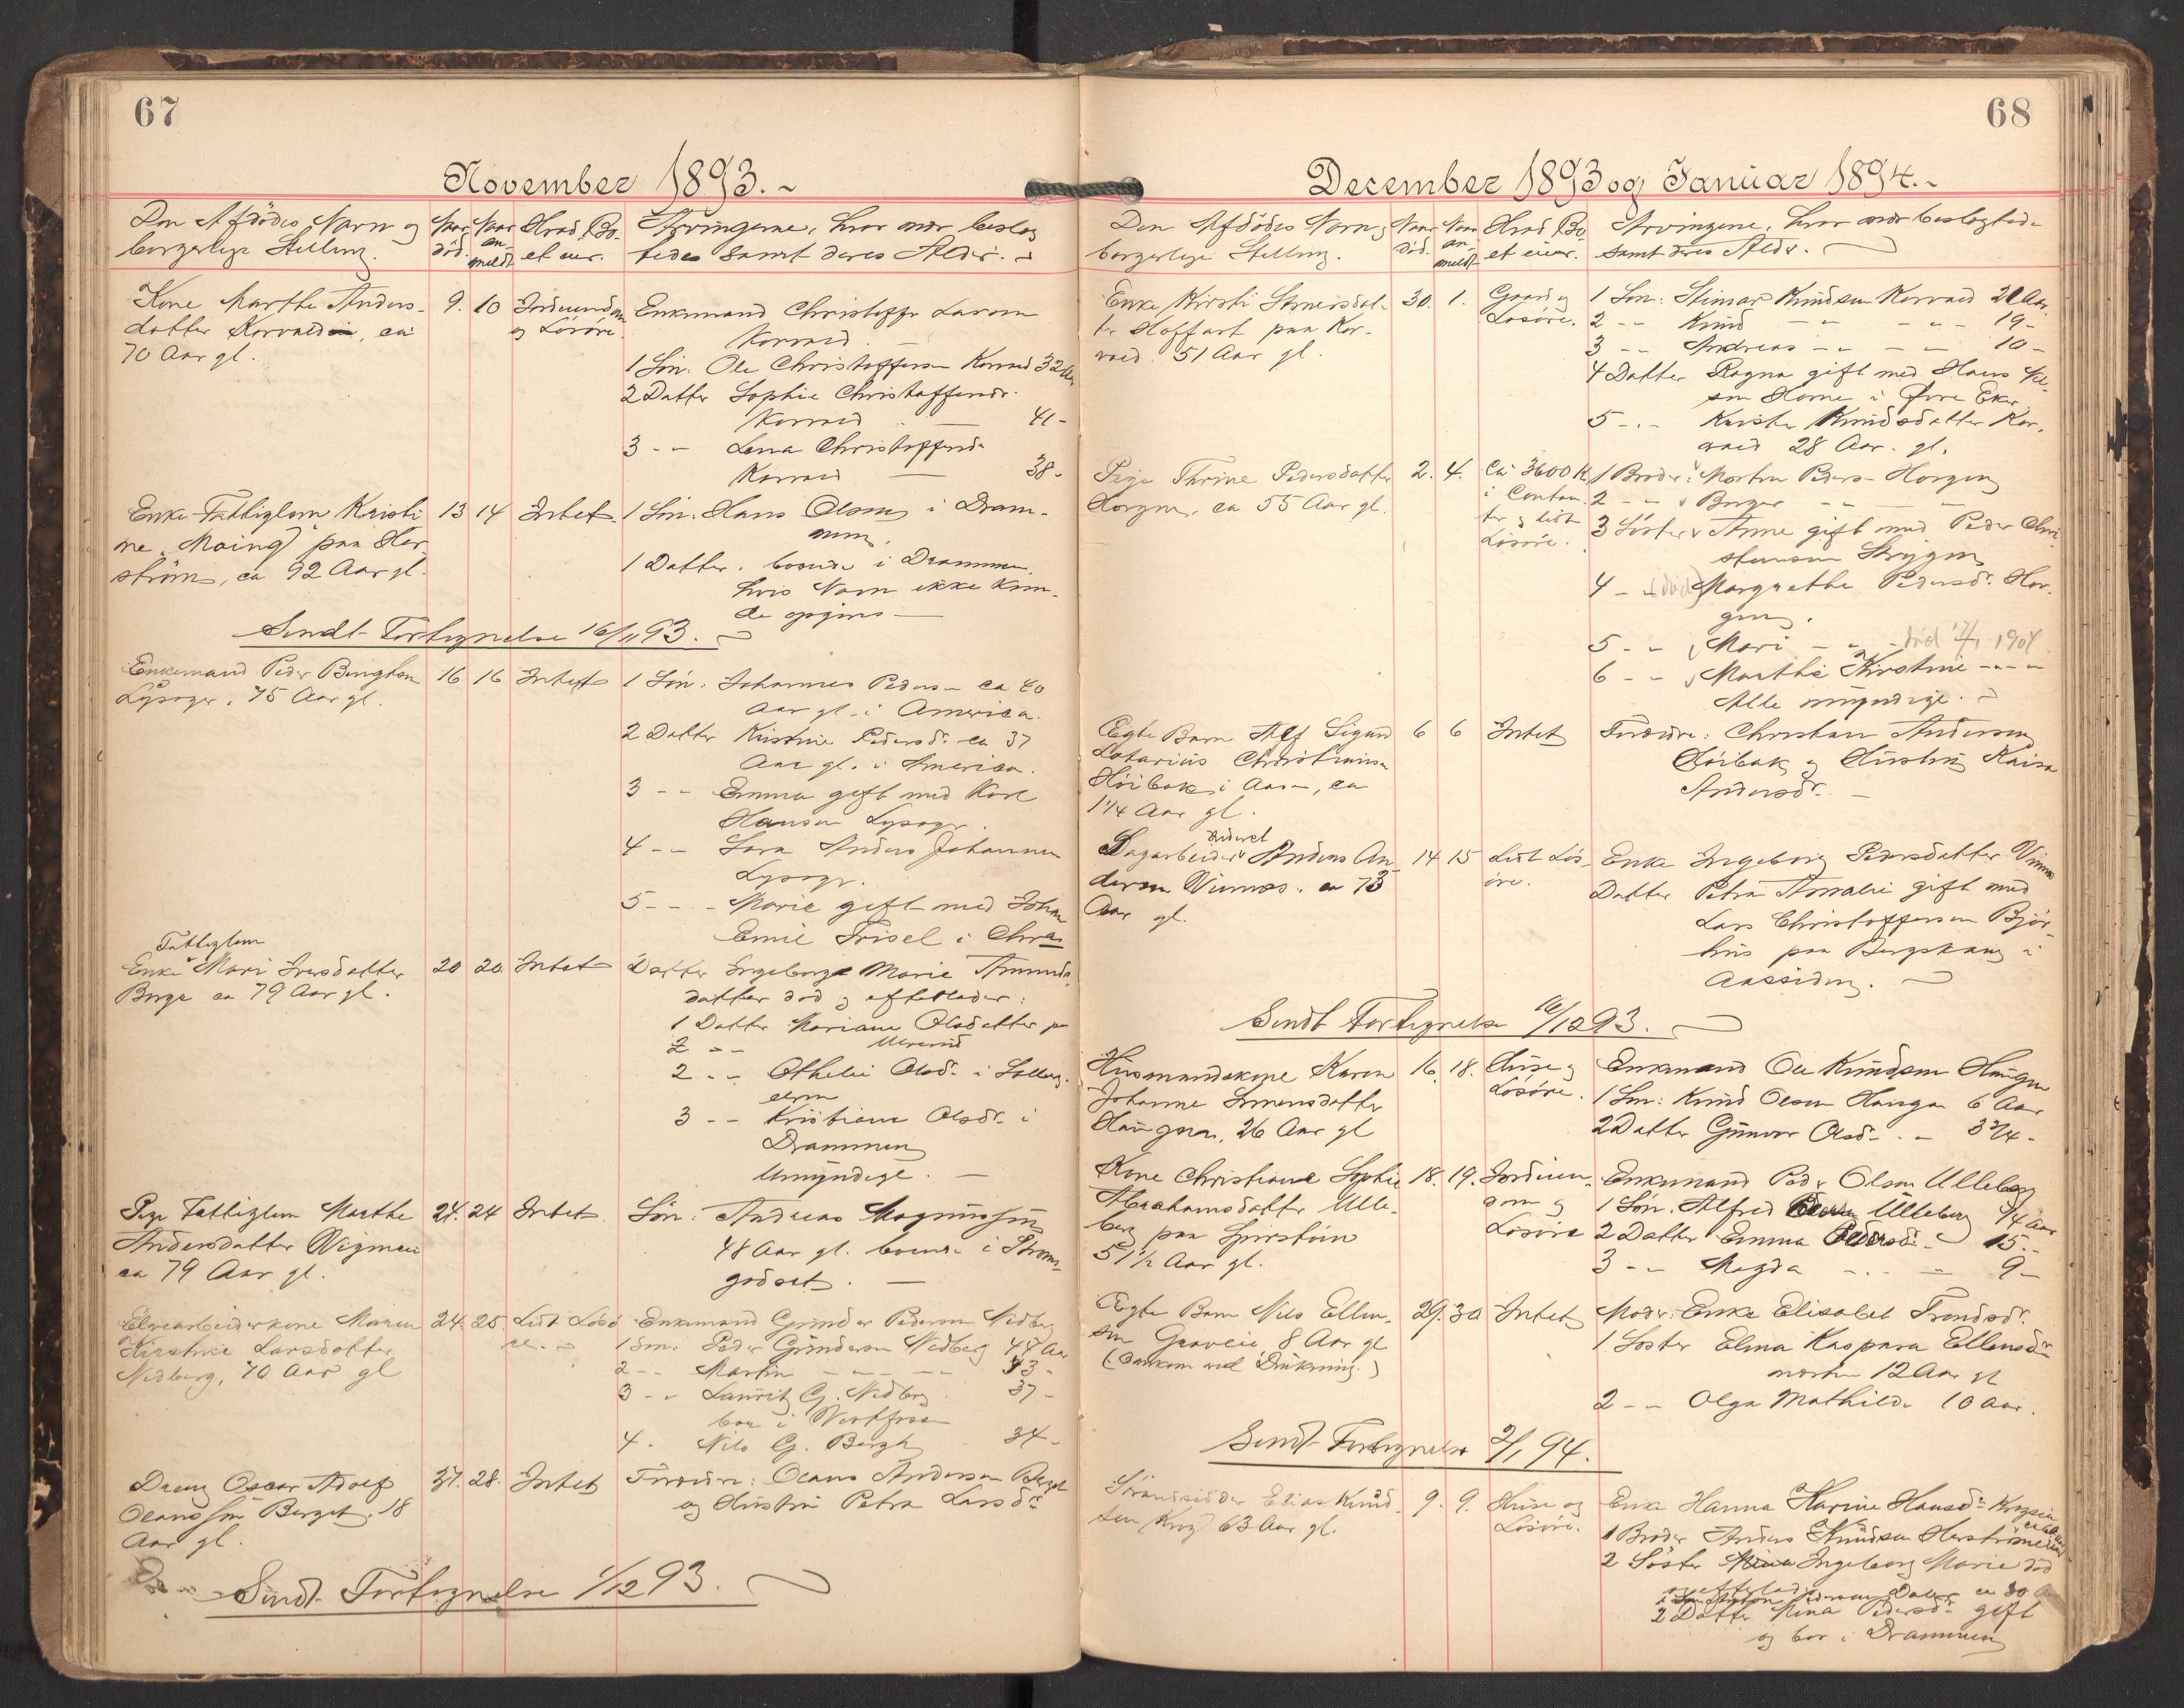 67
November 1893.
Den Afdødes Navn og
borgerlige Stilling.
Naar
død.
Naar
an-
meldt
Hvad Bo-
et eier.
Arvingerne, hvor nær beslæg
tede samt deres Alder.
Kone Marthe Anders-
datter Korvald, ca
70 Aar gl.
9. 10
og Løsøre.
Enkemand Christoffer Larsen
Korvald.
1 Søn: Ole Christoffersen Korvald 32 Aar
2 Datter Sophie Christoffersdr.
Korvald — 41 -
3 - - Lena Christoffersdr
Korvald — 38 -
Enke Fattiglem Kristi
ne Moing paa Her
strøm, ca 92 Aar gl.
13 14 Intet.
1 Søn. Hans Olsen i Dram-
men.
1 Datter, boende i Drammen.
hvis Navn ikke kun-
de opgives —
Sendt Fortegnelse 16/11 93.
Enkemand Peder Bengtsen
Lysager, 75 Aar gl.
16 16 Intet
1 Søn. Johannes Pedersen ca 40
Aar gl. i America.
2 Datter Kristine Pedersdr. ca 37
Aar gl. i America.
3 - - Emma gift med Karl
Hansen Lysager.
4 - - Sara Anders Johannesen
Lysager.
5 - - - Marie gift med Johan
Emil Frisel i Chra
Fattiglem
Enke Mari Iversdatter
Berge ca 79 Aar gl.
20 20. Intet
Datter Ingeborg Marie Amunds-
datter død og efterlader:
1 Datter Mariane Olsdatter paa
2 - -
2 - - Othelie Olsdr. i
3 - - Kristiane Olsdr. i
Drammen
Umyndige. —
Pige Fattiglem Marthe
Andersdatter
ca 79 Aar gl.
24. 24 Intet
Søn: Andreas Magnussen
48 Aar gl. boende i Strøms-
godset. —
Kirstine Larsdatter
Nedberg, 70 Aar gl
24. 25. Lidt Løsø
re. -
Enkemand Gunder Pedersen Nedberg
1 Søn: Peder Gundersen Nedberg 47 Aar
2 - - Martin - - - - 43 -
3 - - Laurits G. Nedberg 37 -
boe i
4. Nils G. Bergh 34 -
Dreng Oscar Adolf
Olaussøn Berget, 18
Aar gl.
27. 28. Intet
Forældre: Olaus Andersen Berget
og Hustru Petra Larsdr
Sendt Fortegnelse 1/12 93.
68
December 1893 og Januar 1894.
Den Afdødes Navn og
borgerlige Stilling.
Naar
død.
Naar
an-
meldt
Hvad Bo-
et eier.
Arvingerne, hvor nær beslægtede
samt deres Alder.
Enke Kirsti Steinersdat-
ter Hoffart paa Kor-
vald 51 Aar gl.
30. 1. Gaard og
Løsøre.
1 Søn: Steinar Knudsen Korvald 21 Aar.
2 - - Knud - - - - 19 -
3 - - Andreas - - - - 10 -
4 Datter Ragna gift med Hans
sen Horne i Øvre Eker
5 - . - Kristi Knudsdatter Kor-
vald 28 Aar. gl.
Pige Thrine Pedersdatter
Horgen, ca 55 Aar gl.
2. 4. Ca 3600 K
i Contan-
ter og lidt
Løsøre.
1 Broder: Morten Peders- Horgen
2 - - Borger - - -
3 Søster Anne gift med Peder Chri
stensen
4 - - (død) Margrethe Pedersdr. Hor-
gen.
5 - - Mari - - død 1904
6 - - Marthe Kirstine - - - -
Alle myndige.
Ægte Barn Alf Sigurd
Lotarius Christiansen
Høibak i Aasen, ca
1 1/4 Aar gl.
6 6 Intet
Forældre: Christian Andersen
Høibak og Hustru Kaisa
Andersdr. —
Dagarbeider Anders An
dersen Vinnæs. ca 73
Aar gl.
14 15 Lidt Løs-
øre.
Enke Ingeborg Pedersdatter
Datter Petra Amalie gift med
Lars Christoffersen Bjør-
hus paa Bergskaug i
Aassiden.
Sendt Fortegnelse 16/12 93.
Husmandskone Karen
Johanne Simensdatter
Haugen, 26 Aar gl
16. 18. Huse og
Løsøre.
Enkemand Ole Knudsen Haugen
1 Søn: Knud Olsen Haugen 6 Aar
2 Datter Gunvor Olsdr. - 3 3/4 -
Kone Christiane Sophie
Abrahamsdatter Ulle-
berg paa
51 1/2 Aar gl.
18. 19. Jordeien-
dom og
Løsøre
Enkemand Peder Olsen Ulleberg
1 Søn. Alfred Ulleberg 14 Aar
2 Datter Emma Pedersdr. - 15. -
3 - - Magda - . - - 9 -
Ægte Barn Nils Ellin-
sen Graveie 8 Aar gl
(Omkom ved Drukning.)
29. 30 Intet
Moder: Enke Elisabet Trondsdr.
1 Søster Elma Kaspara Ellensdr
næsten 12 Aar gl
2 - - Olga Mathilde 10 Aar.
Sendt Fortegnelse 2/1 94.
Strandsidder Elias Knud-
sen Krog 63 Aar gl.
9. 9. Huse og
Løsøre.
Enke Hanna Karine Hansdr.
1 Broder Anders Knudsen
2 Søster Ingeborg Marie død
og efterlader
2 Datter Mina Pedersdr. gift
og bor i Drammen